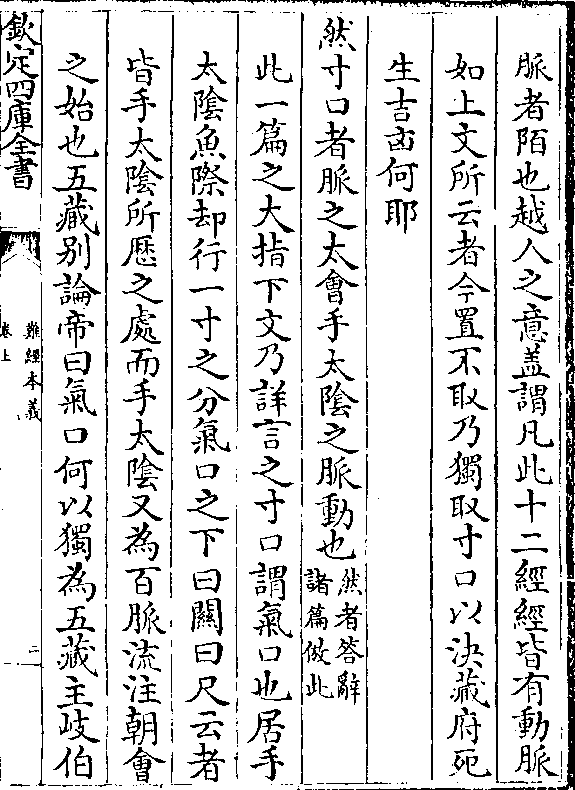 脈者陌也越人之意蓋謂凡此十二經經皆有動脈
如上文所云者今置不取乃獨取寸口以決藏府死
生吉凶何耶
然寸口者脈之太會手太陰之脈動也然者答辭諸篇倣此
此一篇之大指下文乃詳言之寸口謂氣口也居手
太陰魚際却行一寸之分氣口之下曰關曰尺云者
皆手太陰所歴之處而手太陰又為百脈流注朝會
之始也五藏别論帝曰氣口何以獨為五藏主岐伯
欽定四庫全書
難經本義
卷上
二